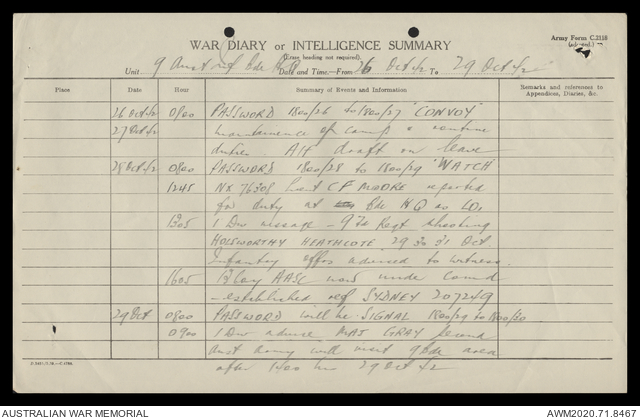 Army Form C.2118
WAR DIARY or INTELLIGENCE SUMMARY
(Erase heading not required).
Unit 9 Aust Inf Bde Date and Time—From 26 Oct 42 To 29 Oct 42
Place Date Hour Summary of Events and Information Remarks and references to Appendices, Diaries, &c.
26 Oct 42 0900 PASSWORD 1800/26 to 1800/27 "CONVOY"
27 Oct 42 Maintenance of camp & routine
duties. draft on leave
28 Oct 42 0800 PASSWORD 1800/28 to 1800/29 'WATCH
1245 NX 76308 Lieut C F MOORE reported
for duty at Bde HQ as LO,
1305 1 Div message - 9 Fd Regt shooting
HOLSWORTHY HEATHCOTE 29 30 31 Oct.
Infantry offrs advised to witness.
1605 Coy AASC now under comd
- established ref SYDNEY 207249
29 Oct 0800 PASSWORD will be SIGNAL 1800/29 to 1800/30
0900 1 Div advise MAJ GRAY Second
Aust Army will visit 9 Bde area
after 1200 hrs 29 Oct 42
AUSTRALIAN WAR MEMORIAL
AWM2020.71.8467